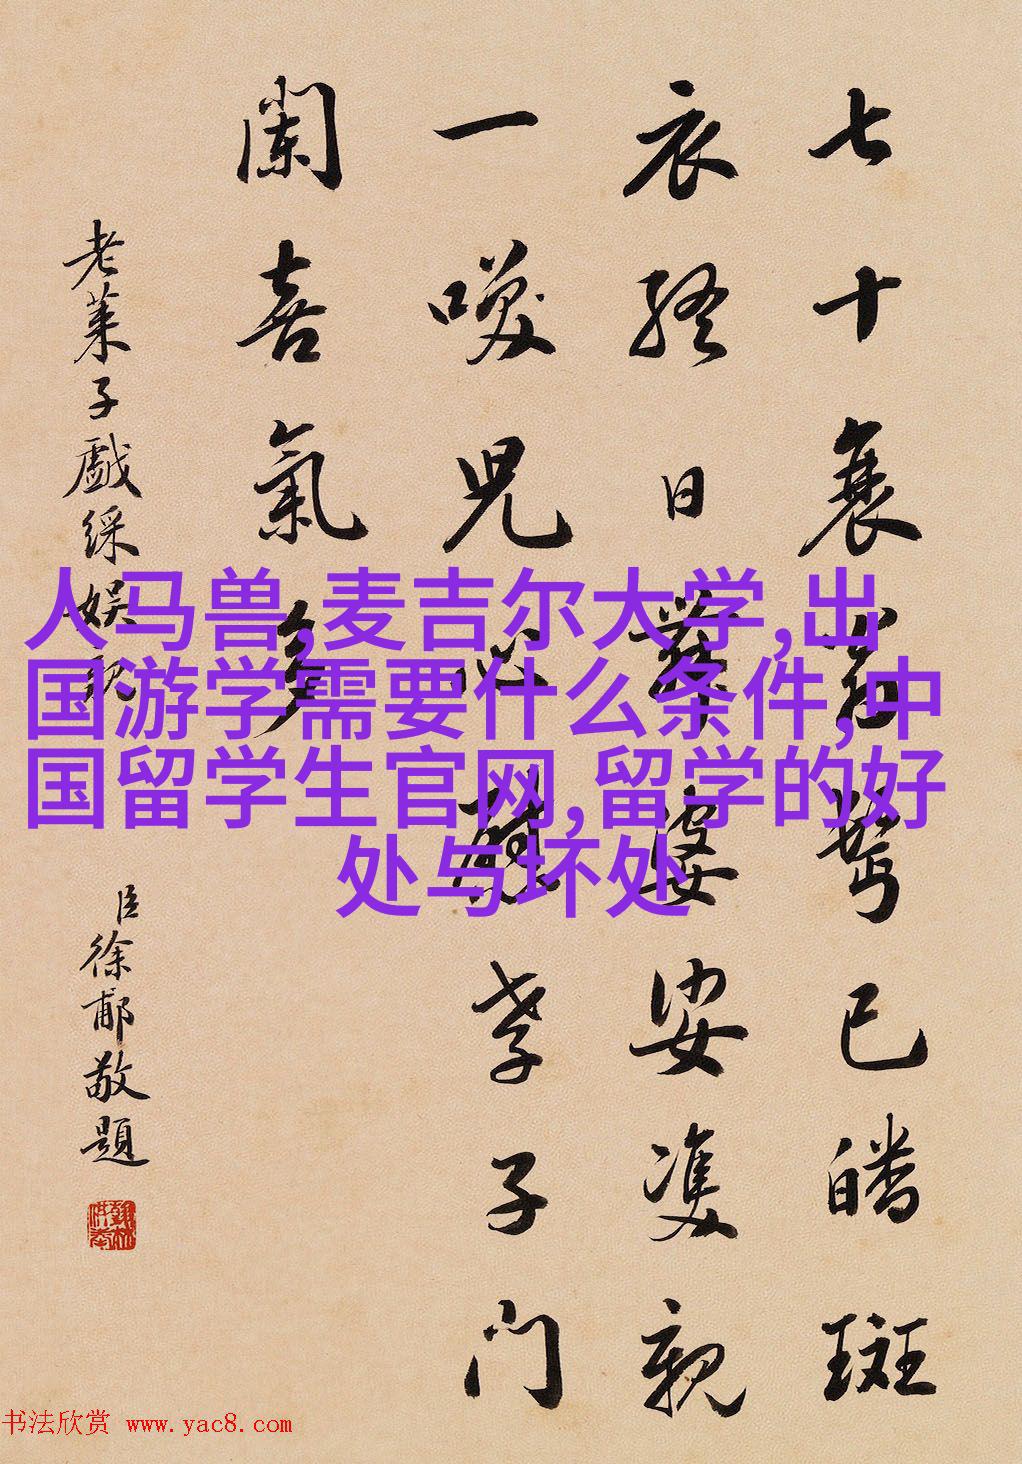 七十衰已皤斑
衣終日舞婆娑雙親
一咲兒心孝子门
闌喜氣多
老萊子戲綵娛親
臣徐郙敬題
人马兽,麦吉尔大学,出
国游学需要什么条件,中
国留学生官网,留学的好
处与坏处
书法欣赏 www.yac8.com